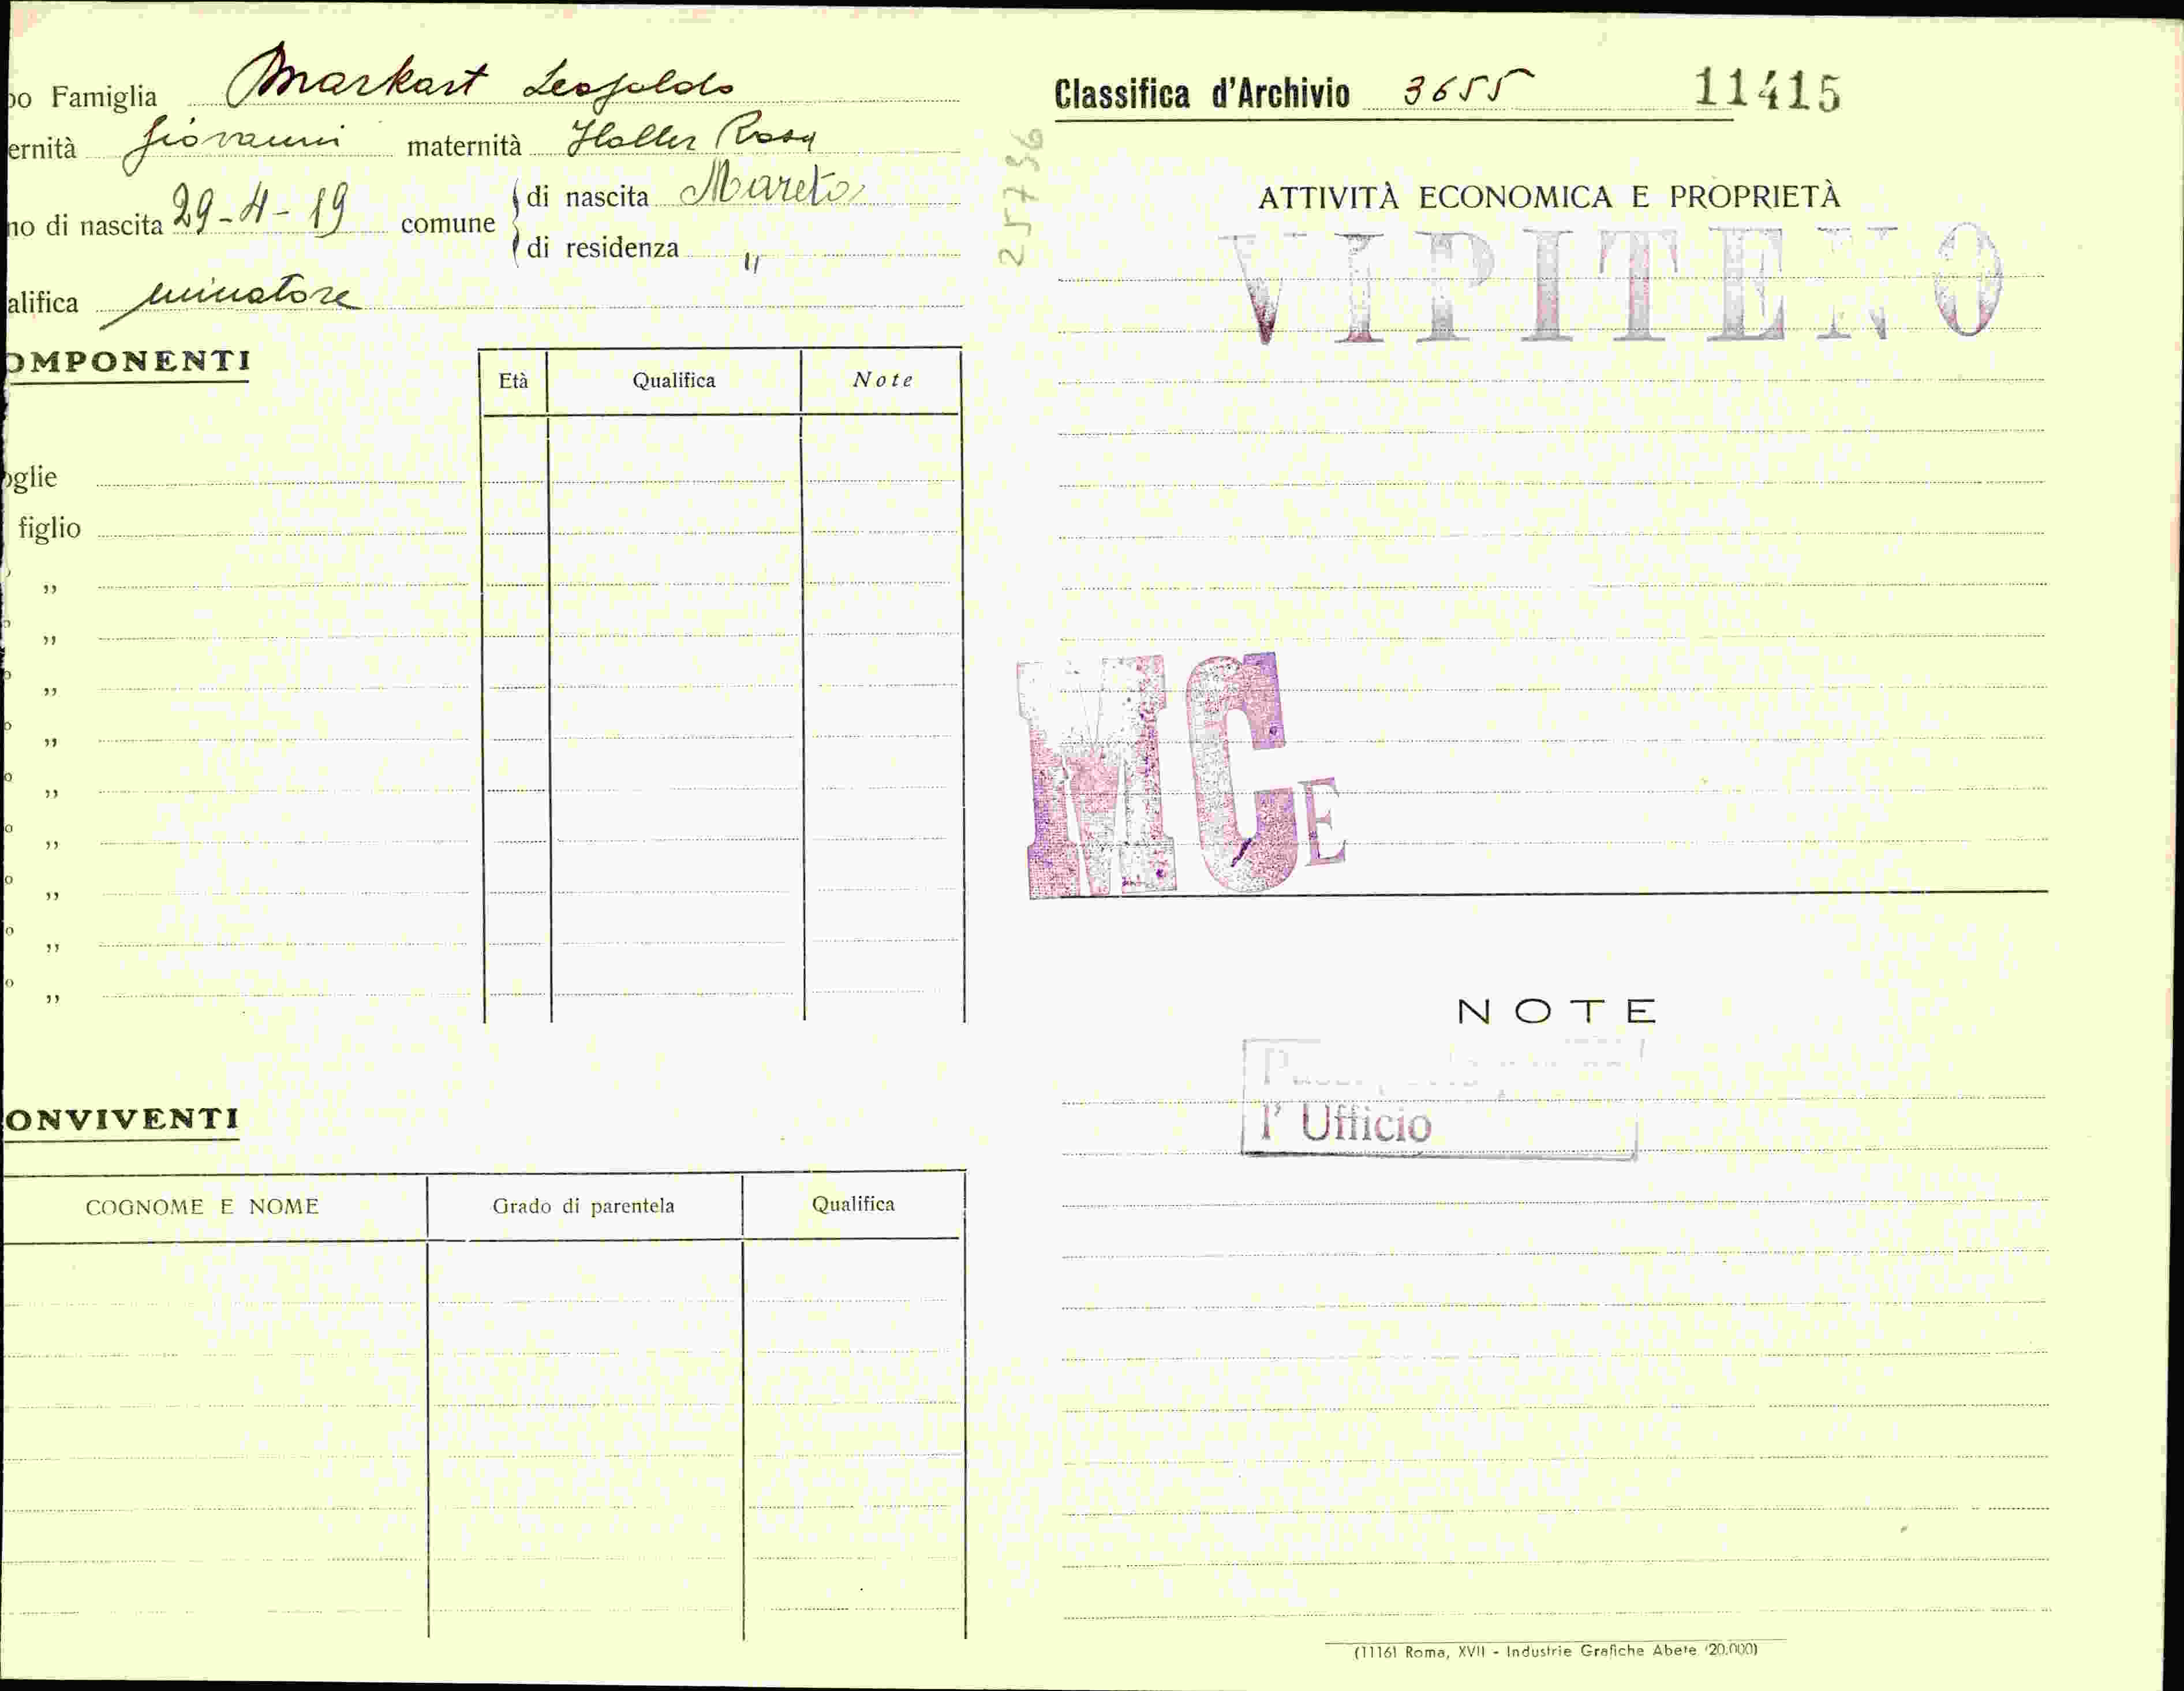 po Famiglia Markart Leopoldo
ernità Giovanni maternità Haller Rosa
no di nascita 29-4-19 comune di nascita Mareta
di residenza "
alifica minatore
OMPONENTI
Età Qualifica Note
oglie
figlio
"
"
"
"
"
"
"
"
"
ONVIVENTI
COGNOME E NOME Grado di parentela Qualifica
257796
Classifica d'Archivio 3655 11415
ATTIVITÀ ECONOMICA E PROPRIETÀ
VIPITENO
MCE
NOTE
l' Ufficio
(1116) Roma, XVII - Industrie Grafiche Abete (20.000)